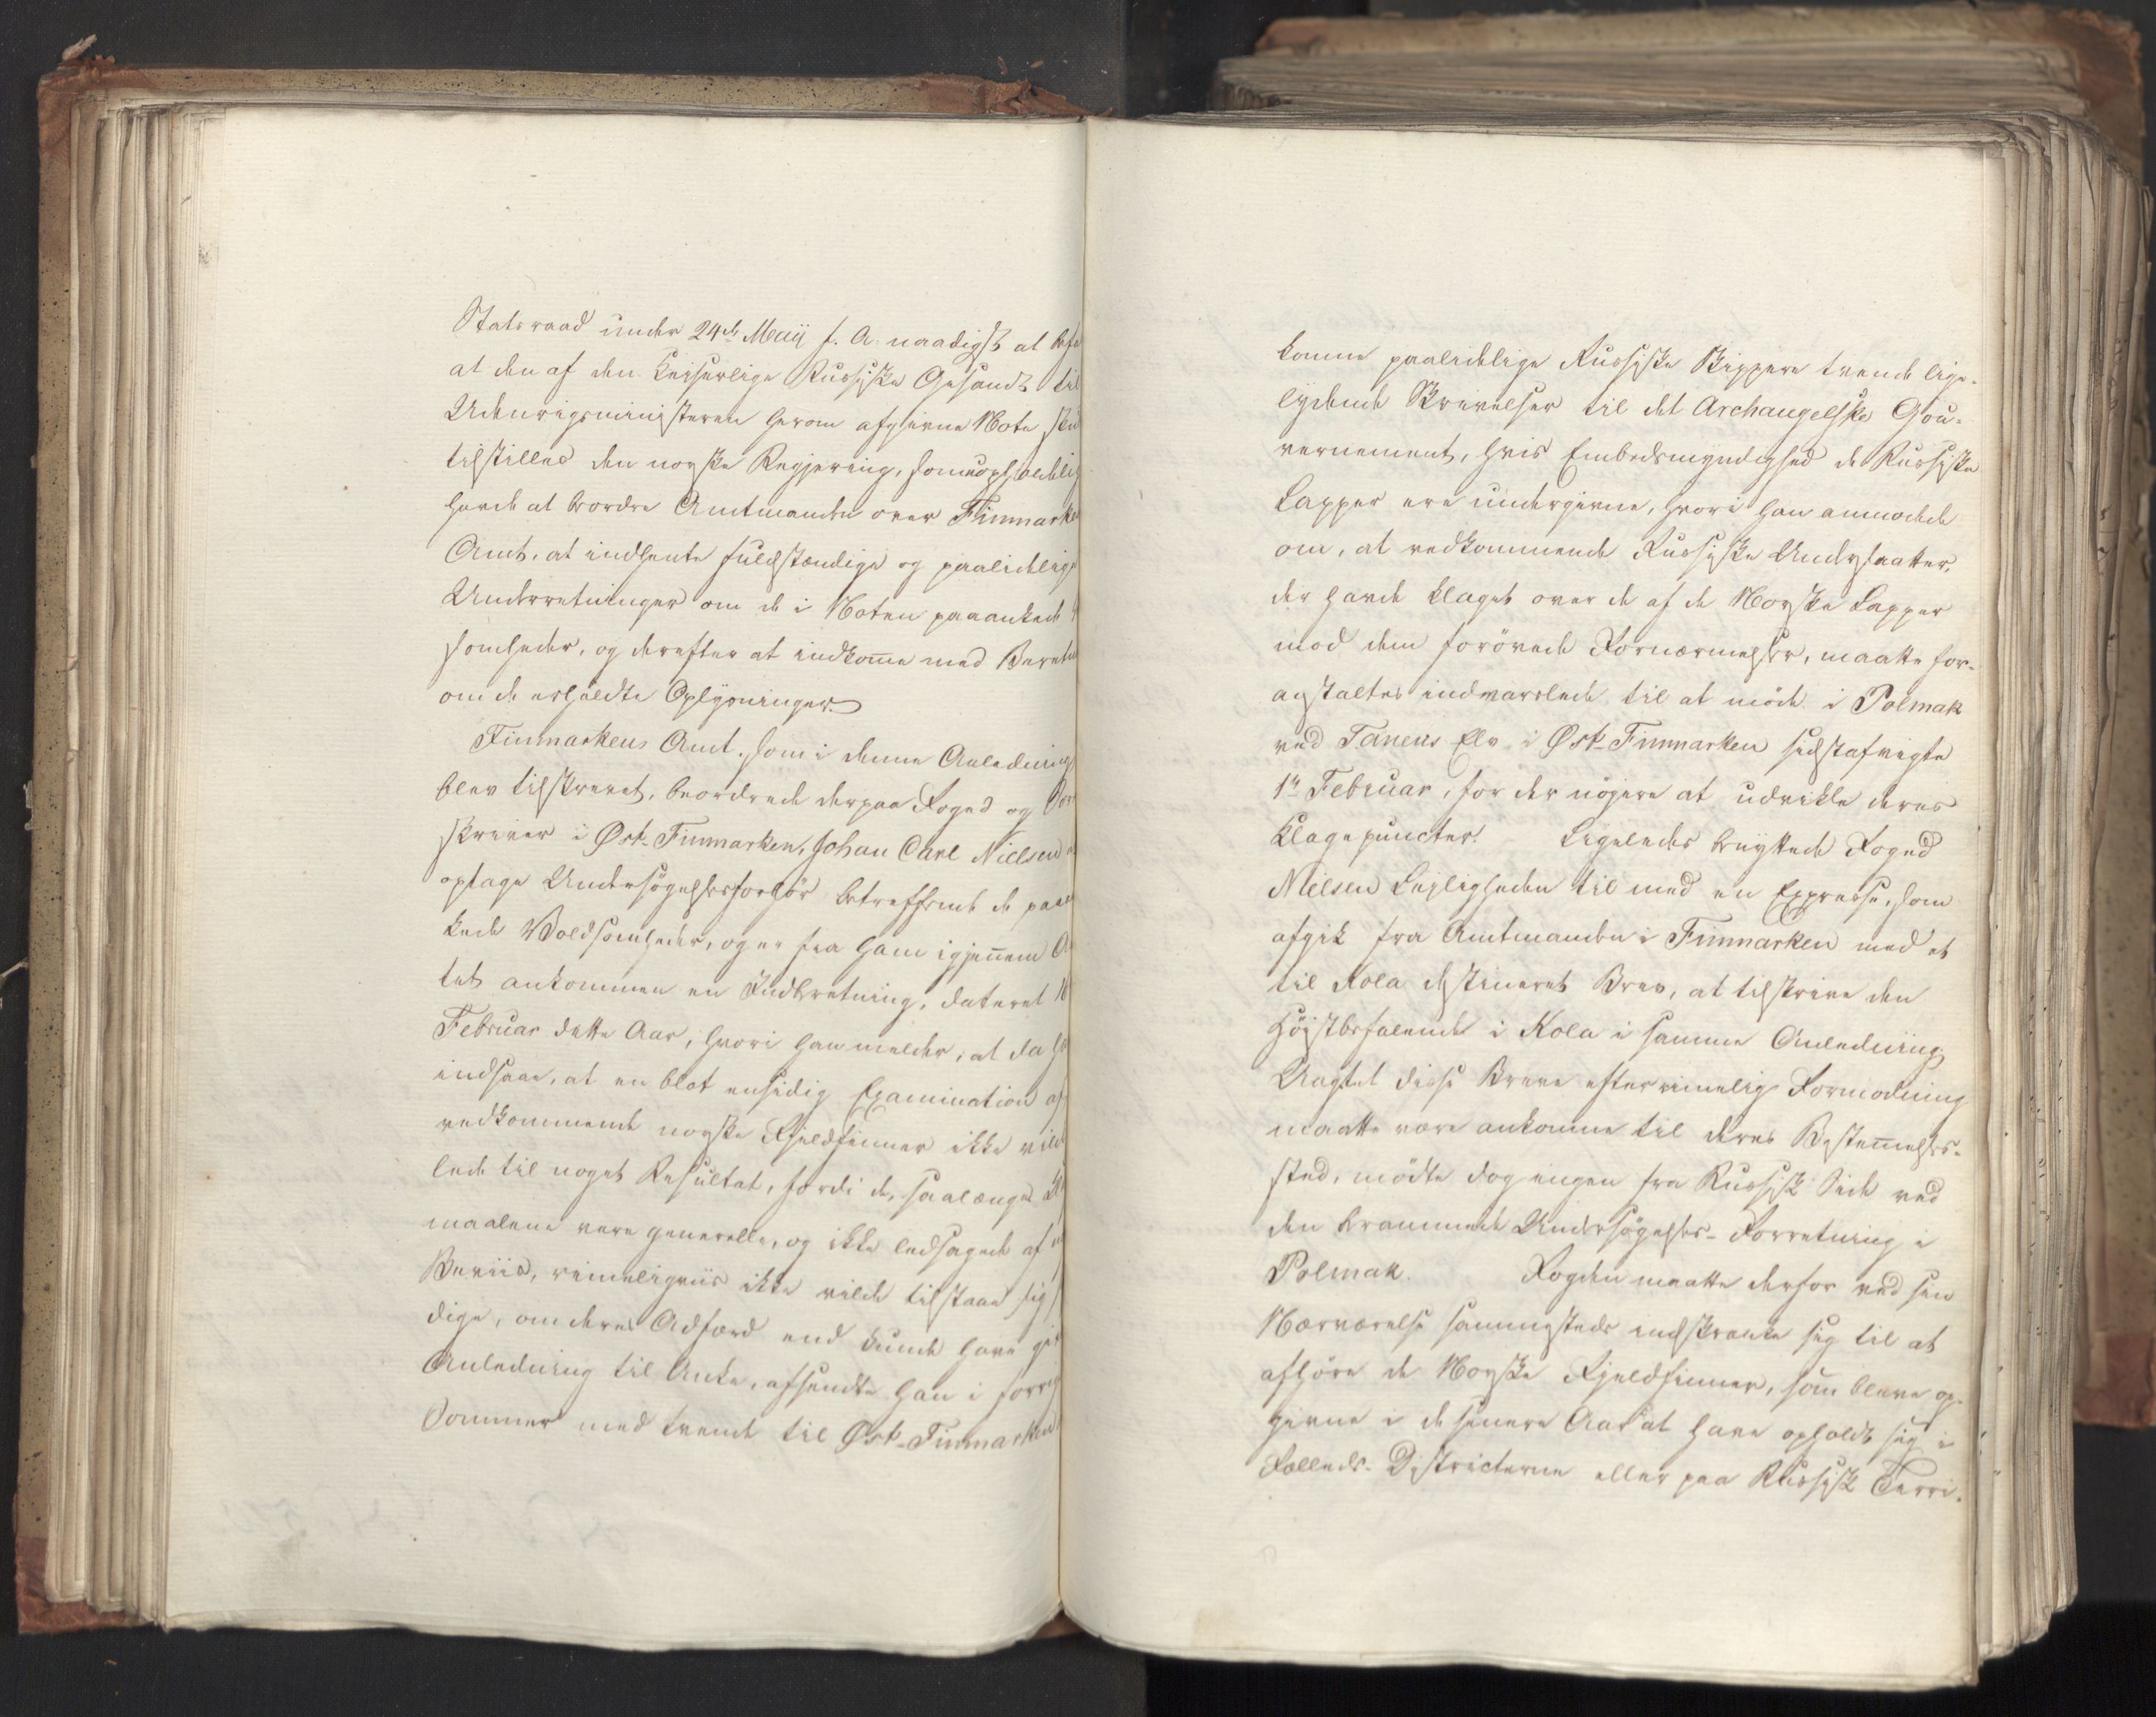 Statsraad under 24de Maii f. A. naadigst at befa
at den af den Keiserlige Russiske Gesandt til
Udenrigsministeren herom afgivne Note sku
tilstilles den norske Regjering, som
havde at beordre Amtmanden over Finmarke
Amt, at indhente fuldstændige og paalidelige
Underretninger om de i Noten paaankede
somheder, og derefter at indkom̄e med Beretn
om de erholdte Oplysninger.
Finmarkens Amt, som i denne Anledning
blev tilskrevet, beordrede derpaa Foged og Sor
skriver i Øst-Finmarken, Johan Carl Nielsen
optage Undersøgelsesforhør betreffende de paaa
kede Voldsomheder, og er fra ham igjen̄em A
tet ankommen en Indberetning, dateret 16
Februar dette Aar, hvori han melder, at da h
indsaae, at en blot ensidig Examination af
vedkommende norske Fjeldfinner ikke vild
lede til noget Resultat, fordi de, saalænge Kl
maalene vare generelle, og ikke ledsagede af
Beviis, rimeligviis ikke vilde tilstaae sig
dige, om deres Adfærd end kunde have gi
Anledning til Anke, afsendte han i forrig
Sommer med trende til Øst-Finmarken
komne paalidelige Russiske Skippere trende lige-
lydende Skrivelser til det Archangelske Gou-
vernement, hvis Embedsmyndighed de Russiske
Lapper ere undergivne, hvori han anmodede
om, at vedkommende Russiske Undersaatter,
der havde klaget over de af de Norske Lapper
mod dem forövede Fornærmelser, maatte for-
anstaltes indvarslede til at møde i Polmak
ved Tanens Elv i Øst-Finmarken sidstafvigte
1ste Februar, for der nøjere at udvikle deres
Klagepuncter. Ligeledes benyttede Foged
Nielsen Lejligheden til med en Expresse, som
afgik fra Amtmanden i Finmarken med et
til Kola destineret Brev, at tilskrive den
Højstbefalende i Kola i samme Anledning
Uagtet disse Breve efter rimelig Formodning
maatte være ankomne til deres Bestem̄elses-
sted, mödte dog ingen fra Russisk Side ved
den berammede Undersøgelses-Forretning i
Polmak. Fogden maatte derfor ved sin
Nærværelse sammesteds indskrænke sig til at
afhöre de Norske Fjeldfinner, som bleve op-
givne i de senere Aar at have opholdt sig i
Fælleds-Districterne eller paa Russisk Terri-